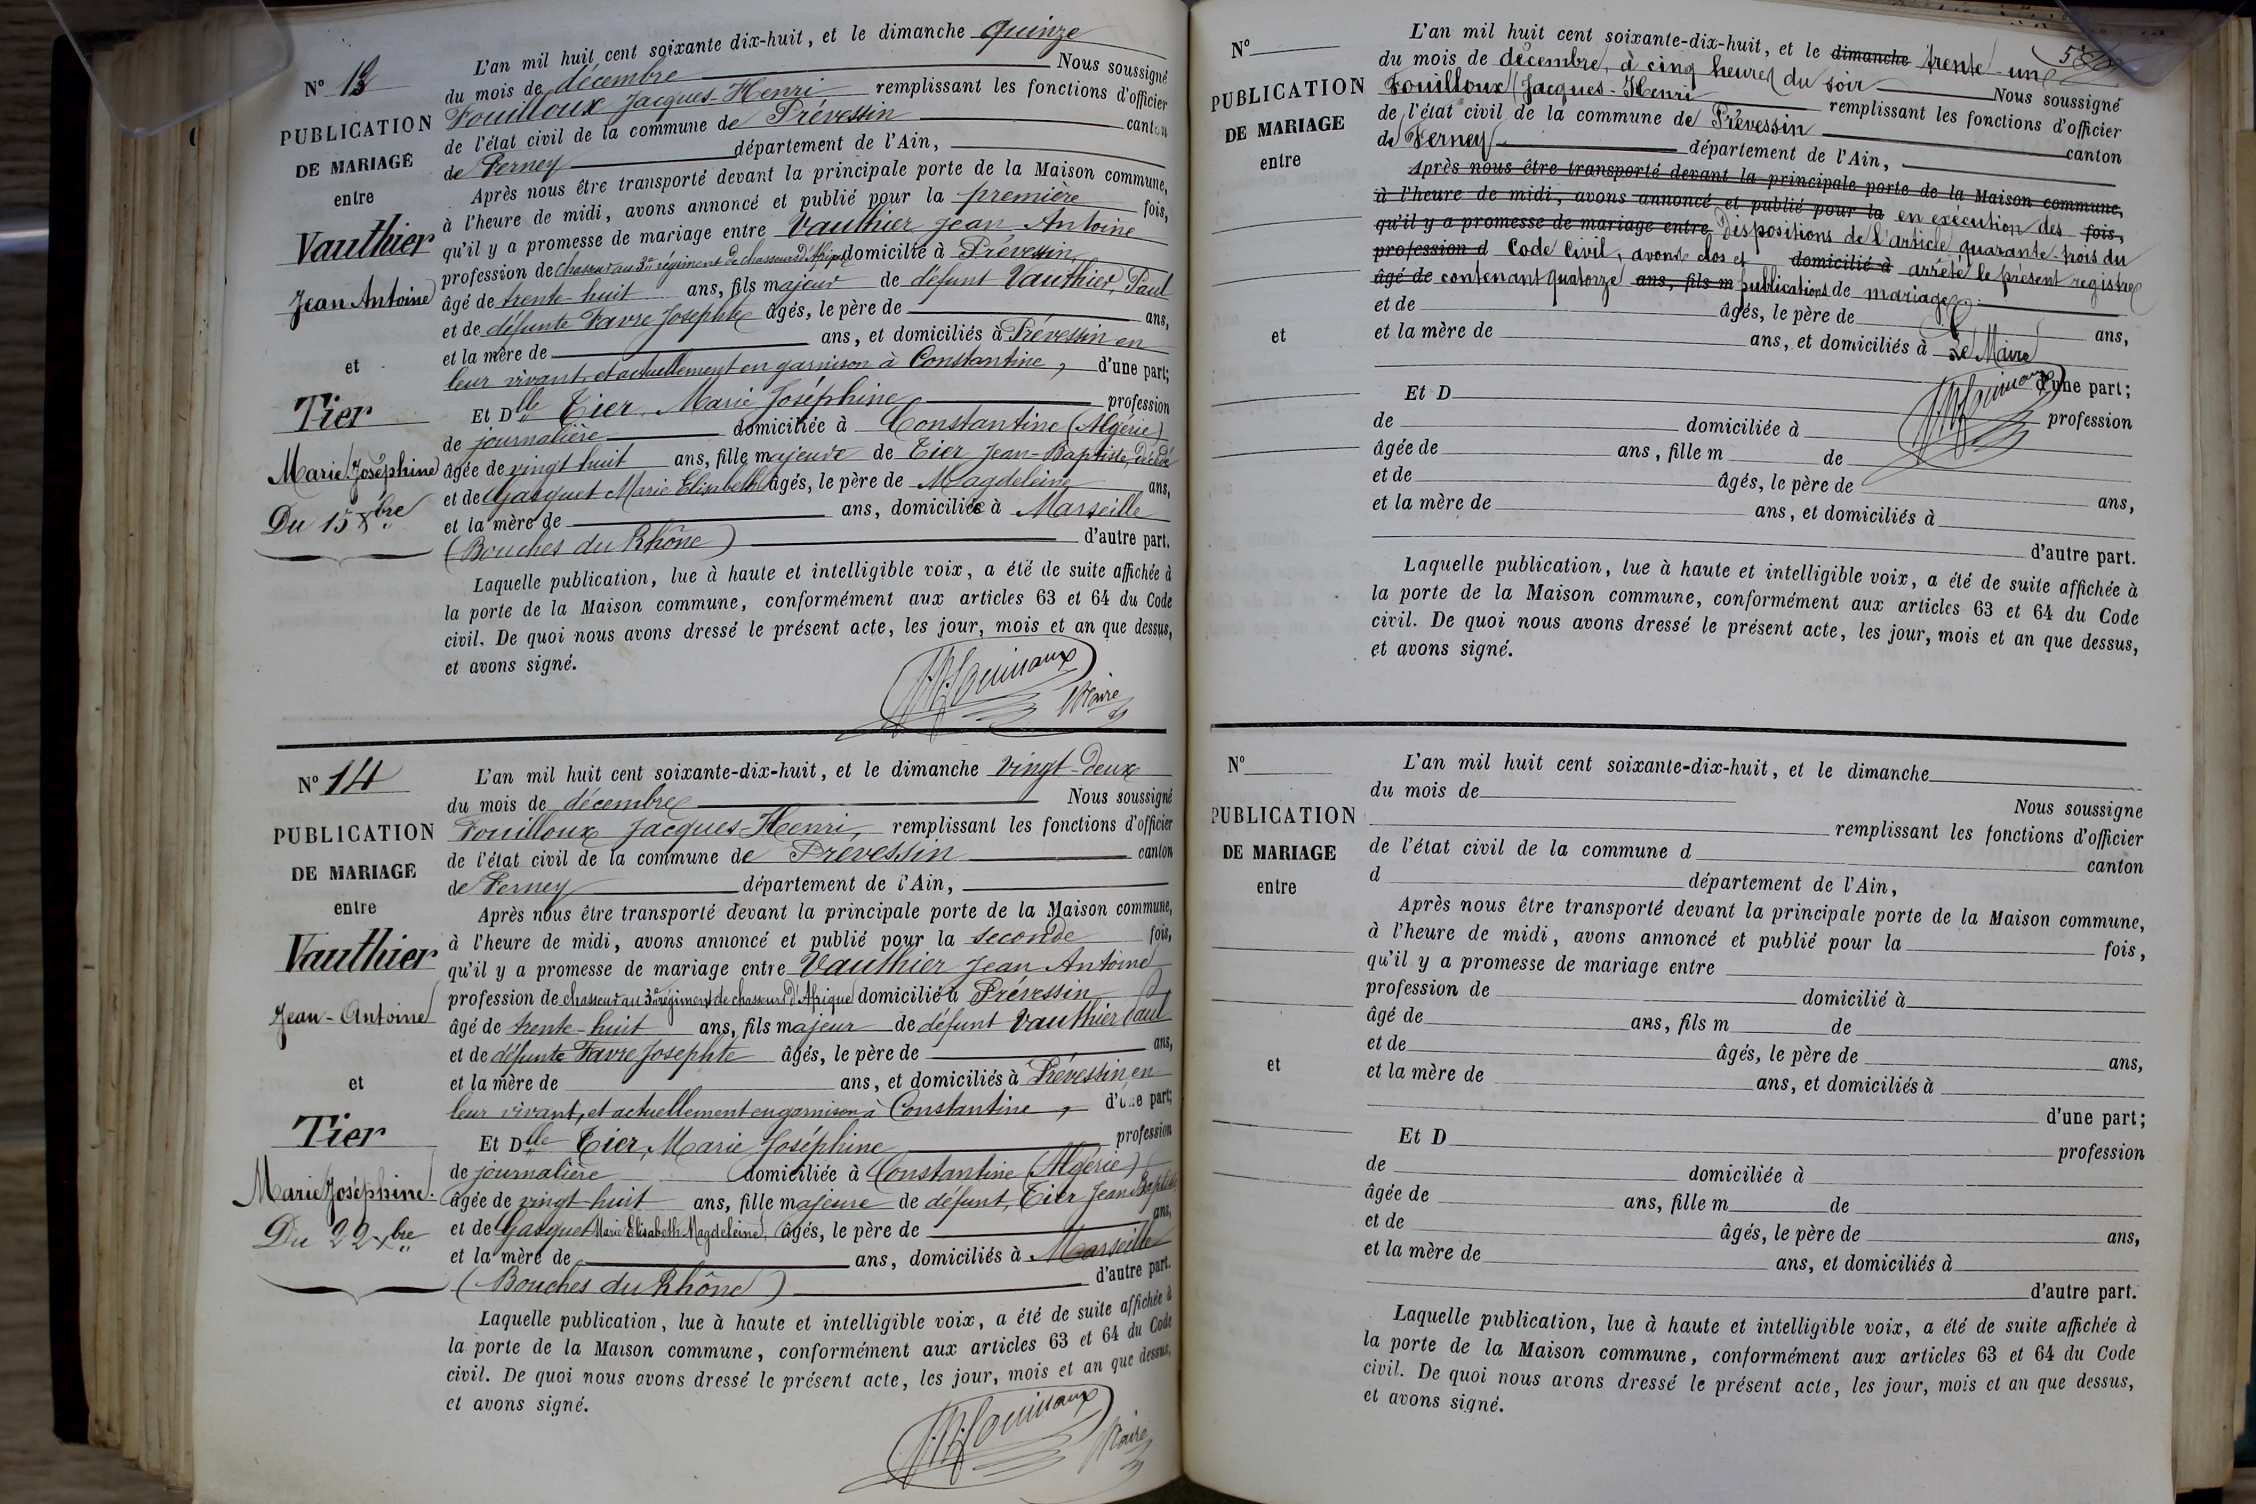 N° 13
PUBLICATION
DE MARIAGE
entre
Vauthier
Jean Antoine
et
Tier
Marie Joséphine
Du 15 Xbre
L'an mil huit cent soixante dix-huit, et le dimanche quinze
du mois de décembre Nous soussigné
Fouilloux Jacques-Henri remplissant les fonctions d'officier
de l'état civil de la commune de Prévessin canton
de Ferney département de l'Ain,
Après nous être transporté devant la principale porte de la Maison commune,
à l'heure de midi, avons annoncé et publié pour la première fois,
qu'il y a promesse de mariage entre Vauthier Jean Antoine
profession de chasseur au 3e régiment de chasseurs d'Afrique domicilié à Prévessin
âgé de trente-huit ans, fils majeur de défunt Vauthier Paul
et de défunte Favre Josephte âgés, le père de ans,
et la mère de ans, et domiciliés à Prévessin en
leur vivant, et actuellement en garnison à Constantine, d'une part;
Et Dlle Tier, Marie Joséphine profession
de journalière domiciliée à Constantine (Algérie)
âgée de vingt huit ans, fille majeure de Tier Jean-Baptiste, décédé
et de Gasquet Marie Elisabeth âgés, le père de Magdeleine ans,
et la mère de ans, domiciliée à Marseille
(Bouches du Rhône) d'autre part.
Laquelle publication, lue à haute et intelligible voix, a été de suite affichée à
la porte de la Maison commune, conformément aux articles 63 et 64 du Code
civil. De quoi nous avons dressé le présent acte, les jour, mois et an que dessus,
et avons signé.
Maire
N° 14
PUBLICATION
DE MARIAGE
entre
Vauthier
Jean-Antoine
et
Tier
Marie Joséphine.
Du 22 Xbre
L'an mil huit cent soixante-dix-huit, et le dimanche vingt-deux
du mois de décembre Nous soussigné
Fouilloux Jacques-Henri, remplissant les fonctions d'officier
de l'état civil de la commune de Prévessin canton
de Ferney département de l'Ain,
Après nous être transporté devant la principale porte de la Maison commune,
à l'heure de midi, avons annoncé et publié pour la seconde fois,
qu'il y a promesse de mariage entre Vauthier Jean Antoine
profession de chasseur au 3e régiment de chasseurs d'Afrique domicilié à Prévessin
âgé de trente-huit ans, fils majeur de défunt Vauthier Paul
et de défunte Favre Josephte âgés, le père de ans,
et la mère de ans, et domiciliés à Prévessin, en
leur vivant, et actuellement en garnison à Constantine, d'une part;
Et Dlle Tier, Marie Joséphine profession
de journalière domiciliée à Constantine (Algérie)
âgée de vingt-huit ans, fille majeure de défunt, Tier Jean Baptiste
et de Gasquet Marie Elisabeth Magdeleine, âgés, le père de ans,
et la mère de ans, domiciliés à Marseille
(Bouches du Rhône) d'autre part.
Laquelle publication, lue à haute et intelligible voix, a été de suite affichée à
la porte de la Maison commune, conformément aux articles 63 et 64 du Code
civil. De quoi nous avons dressé le présent acte, les jour, mois et an que dessus,
et avons signé.
Maire
N°
PUBLICATION
DE MARIAGE
entre
et
L'an mil huit cent soixante-dix-huit, et le dimanche trente-un
du mois de décembre, à cinq heures du soir Nous soussigné
Fouilloux (Jacques-Henri remplissant les fonctions d'officier
de l'état civil de la commune de Prévessin canton
de Ferney département de l'Ain,
Après nous être transporté devant la principale porte de la Maison commune,
à l'heure de midi, avons annoncé et publié pour la en exécution des fois,
qu'il y a promesse de mariage entre Dispositions de l'article quarante-trois du
profession d Code Civil, avons clos et domicilié à arrêté le présent registre
âgé de contenant quatorze ans, fils m publications de mariage
et de âgés, le père de ans,
et la mère de ans, et domiciliés à Le Maire
d'une part;
Et D profession
de domiciliée à
âgée de ans, fille m de
et de âgés, le père de ans,
et la mère de ans, et domiciliés à
d'autre part.
Laquelle publication, lue à haute et intelligible voix, a été de suite affichée à
la porte de la Maison commune, conformément aux articles 63 et 64 du Code
civil. De quoi nous avons dressé le présent acte, les jour, mois et an que dessus,
et avons signé.
N°
PUBLICATION
DE MARIAGE
entre
et
L'an mil huit cent soixante-dix-huit, et le dimanche
du mois de Nous soussigne
remplissant les fonctions d'officier
de l'état civil de la commune d canton
d département de l'Ain,
Après nous être transporté devant la principale porte de la Maison commune,
à l'heure de midi, avons annoncé et publié pour la fois,
qu'il y a promesse de mariage entre
profession de domicilié à
âgé de ans, fils m de
et de âgés, le père de ans,
et la mère de ans, et domiciliés à
d'une part;
Et D profession
de domiciliée à
âgée de ans, fille m de
et de âgés, le père de ans,
et la mère de ans, et domiciliés à
d'autre part.
Laquelle publication, lue à haute et intelligible voix, a été de suite affichée à
la porte de la Maison commune, conformément aux articles 63 et 64 du Code
civil. De quoi nous avons dressé le présent acte, les jour, mois et an que dessus,
et avons signé.